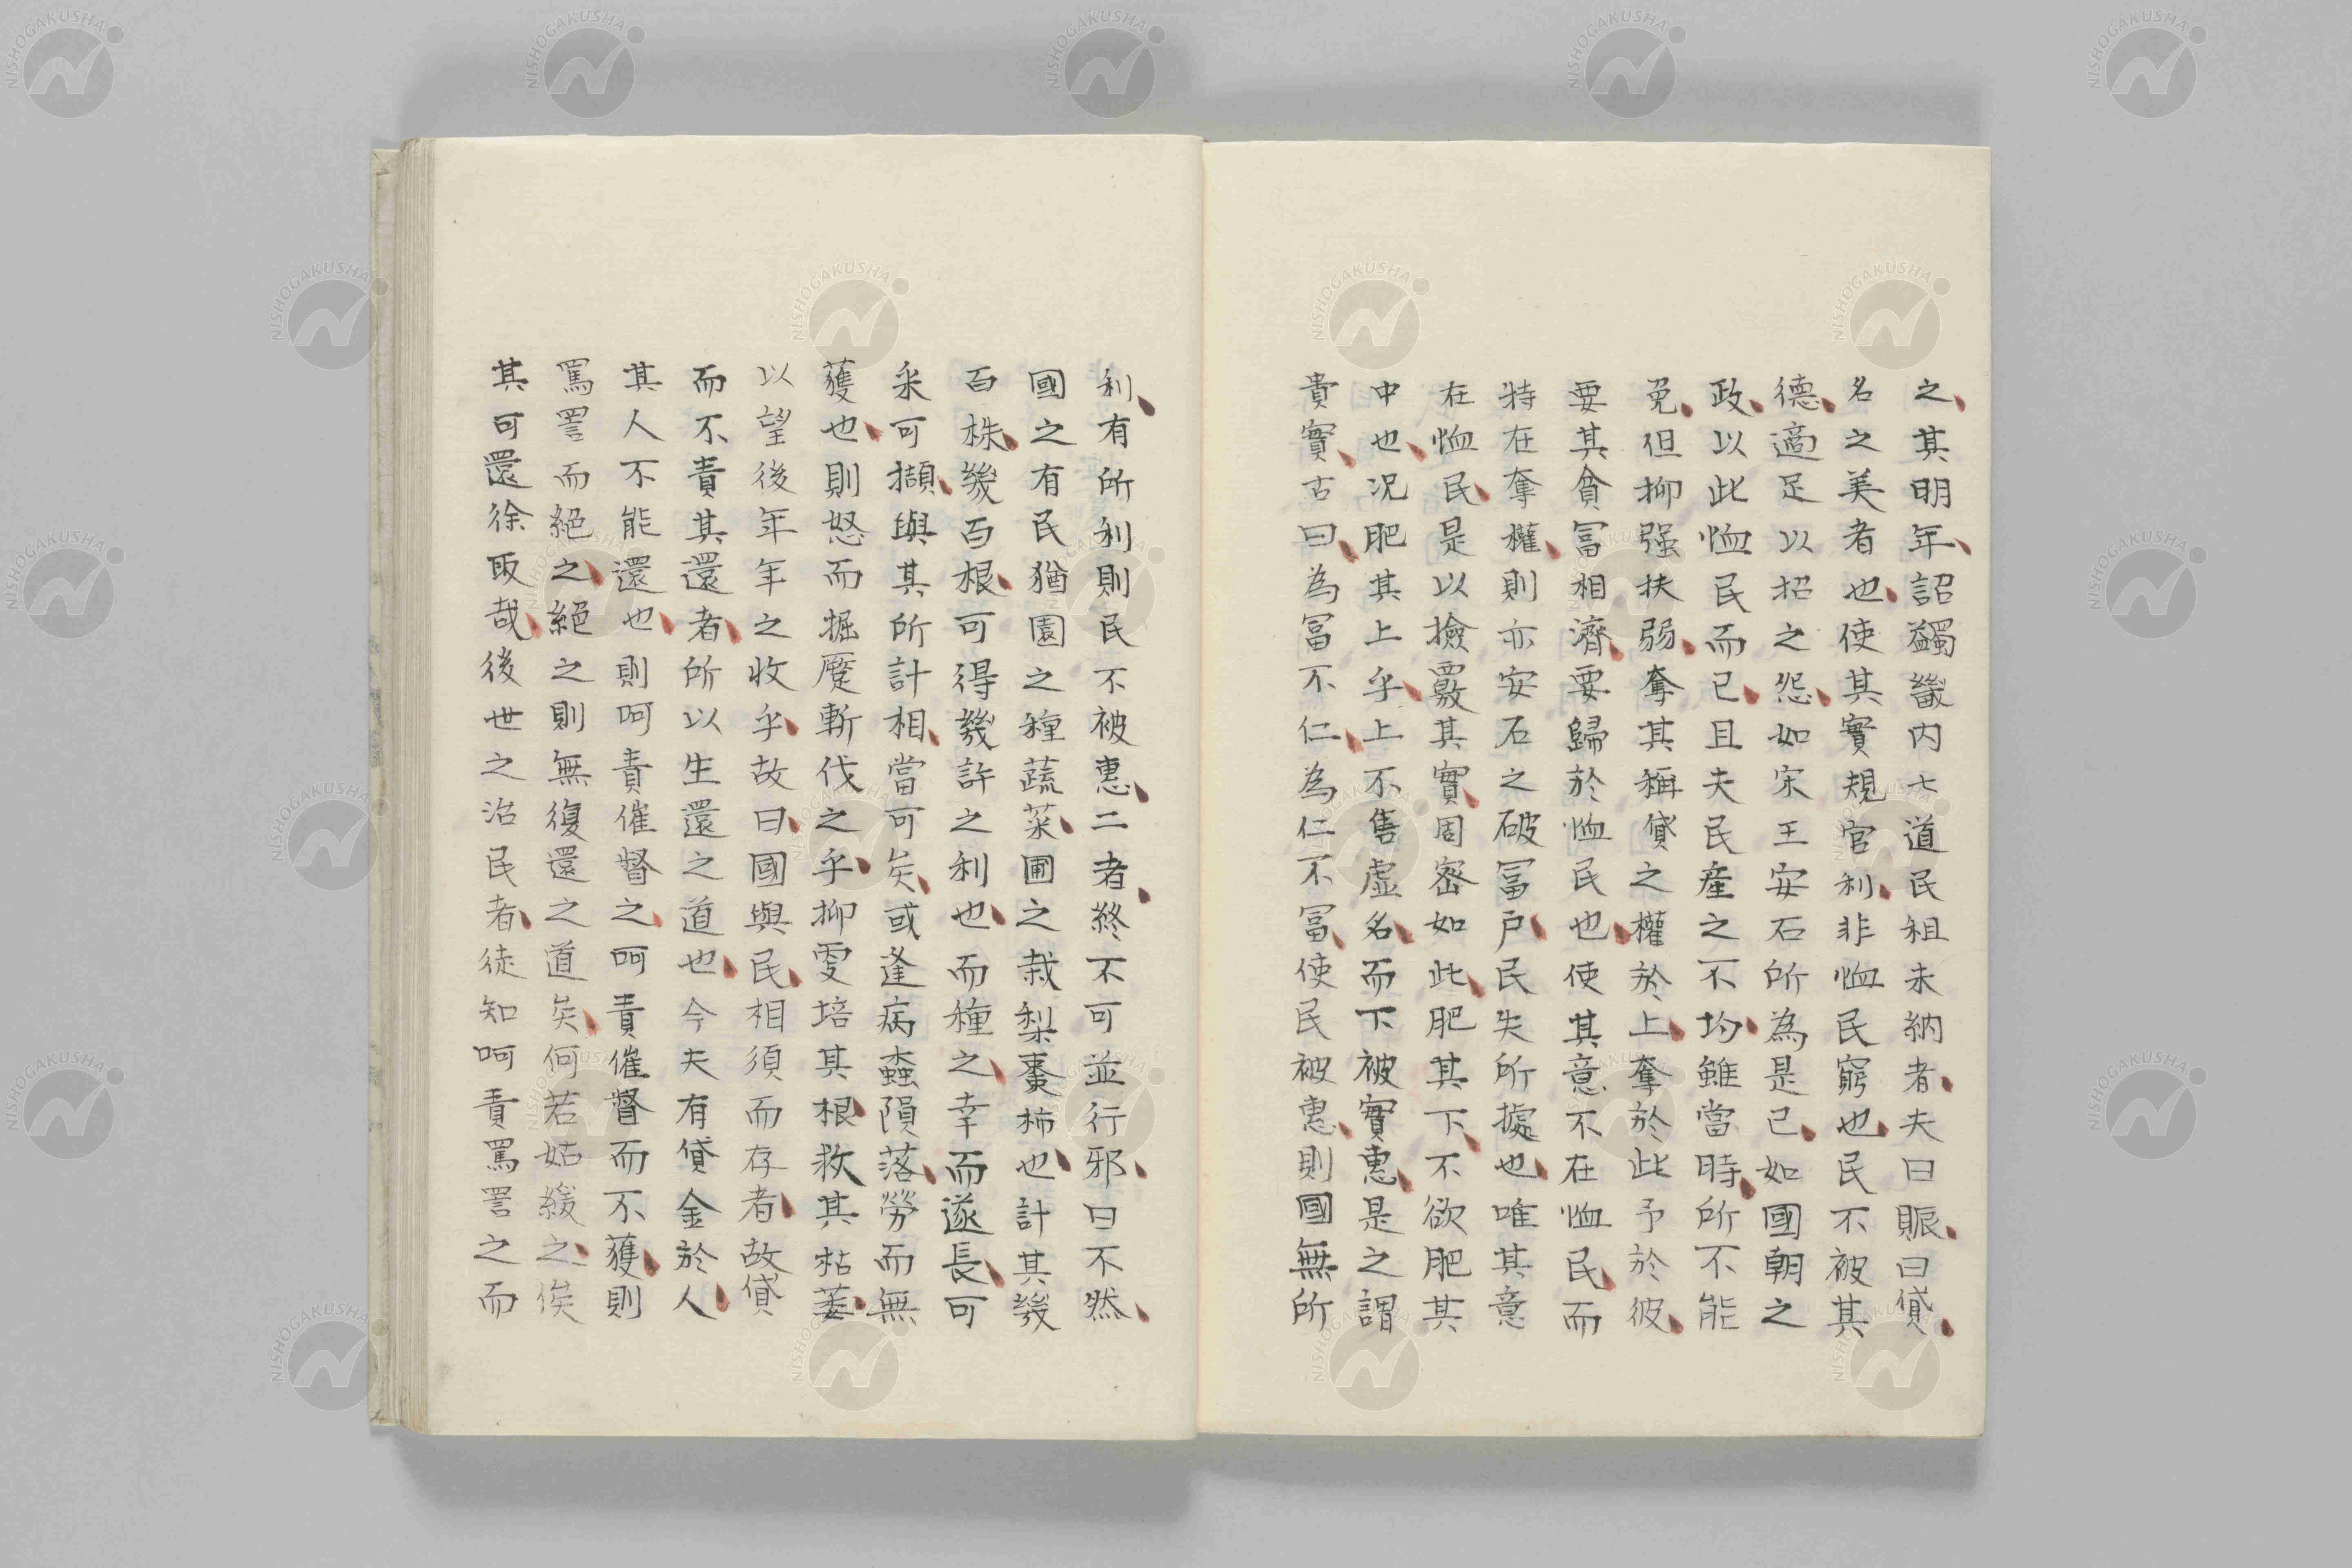 之其明年詔蠲畿内七道民租未納者夫曰賑曰貸
名之美者也使其實規官利非恤民窮也民不被其
德適足以招之怨如宋王安石所為是已如國朝之
政以此恤民而已且夫民產之不均雖當時所不能
免但抑强扶弱奪其稱貸之權於上奪於此予於彼
要其貧冨相濟要歸於恤民也使其意不在恤民而
特在奪權則亦安石之破冨戶民失所據也唯其意
在恤民是以撿覈其實周密如此肥其下不欲肥其
中也况肥其上乎上不售虛名而下被實惠是之謂
貴實古曰為冨不仁為仁不冨使民被惠則國無所
利有所利則民不被惠二者終不可並行邪曰不然
國之有民猶園之種蔬菜圃之栽梨棗柿也計其幾
百株幾百根可得幾許之利也而種之幸而遂長可
采可擷與其所計相當可矣或逢病蠹隕落勞而無
獲也則怒而掘蹷斬伐之乎抑更培其根救其枯萎
以望後年年之收乎故曰國與民相須而存者故貸
而不責其還者所以生還之道也今夫有貸金於人
其人不能還也則呵責催督之呵責催督而不獲則
罵詈而絕之絕之則無復還之道矣何若姑緩之俟
其可還徐取哉後世之治民者徒知呵責罵詈之而